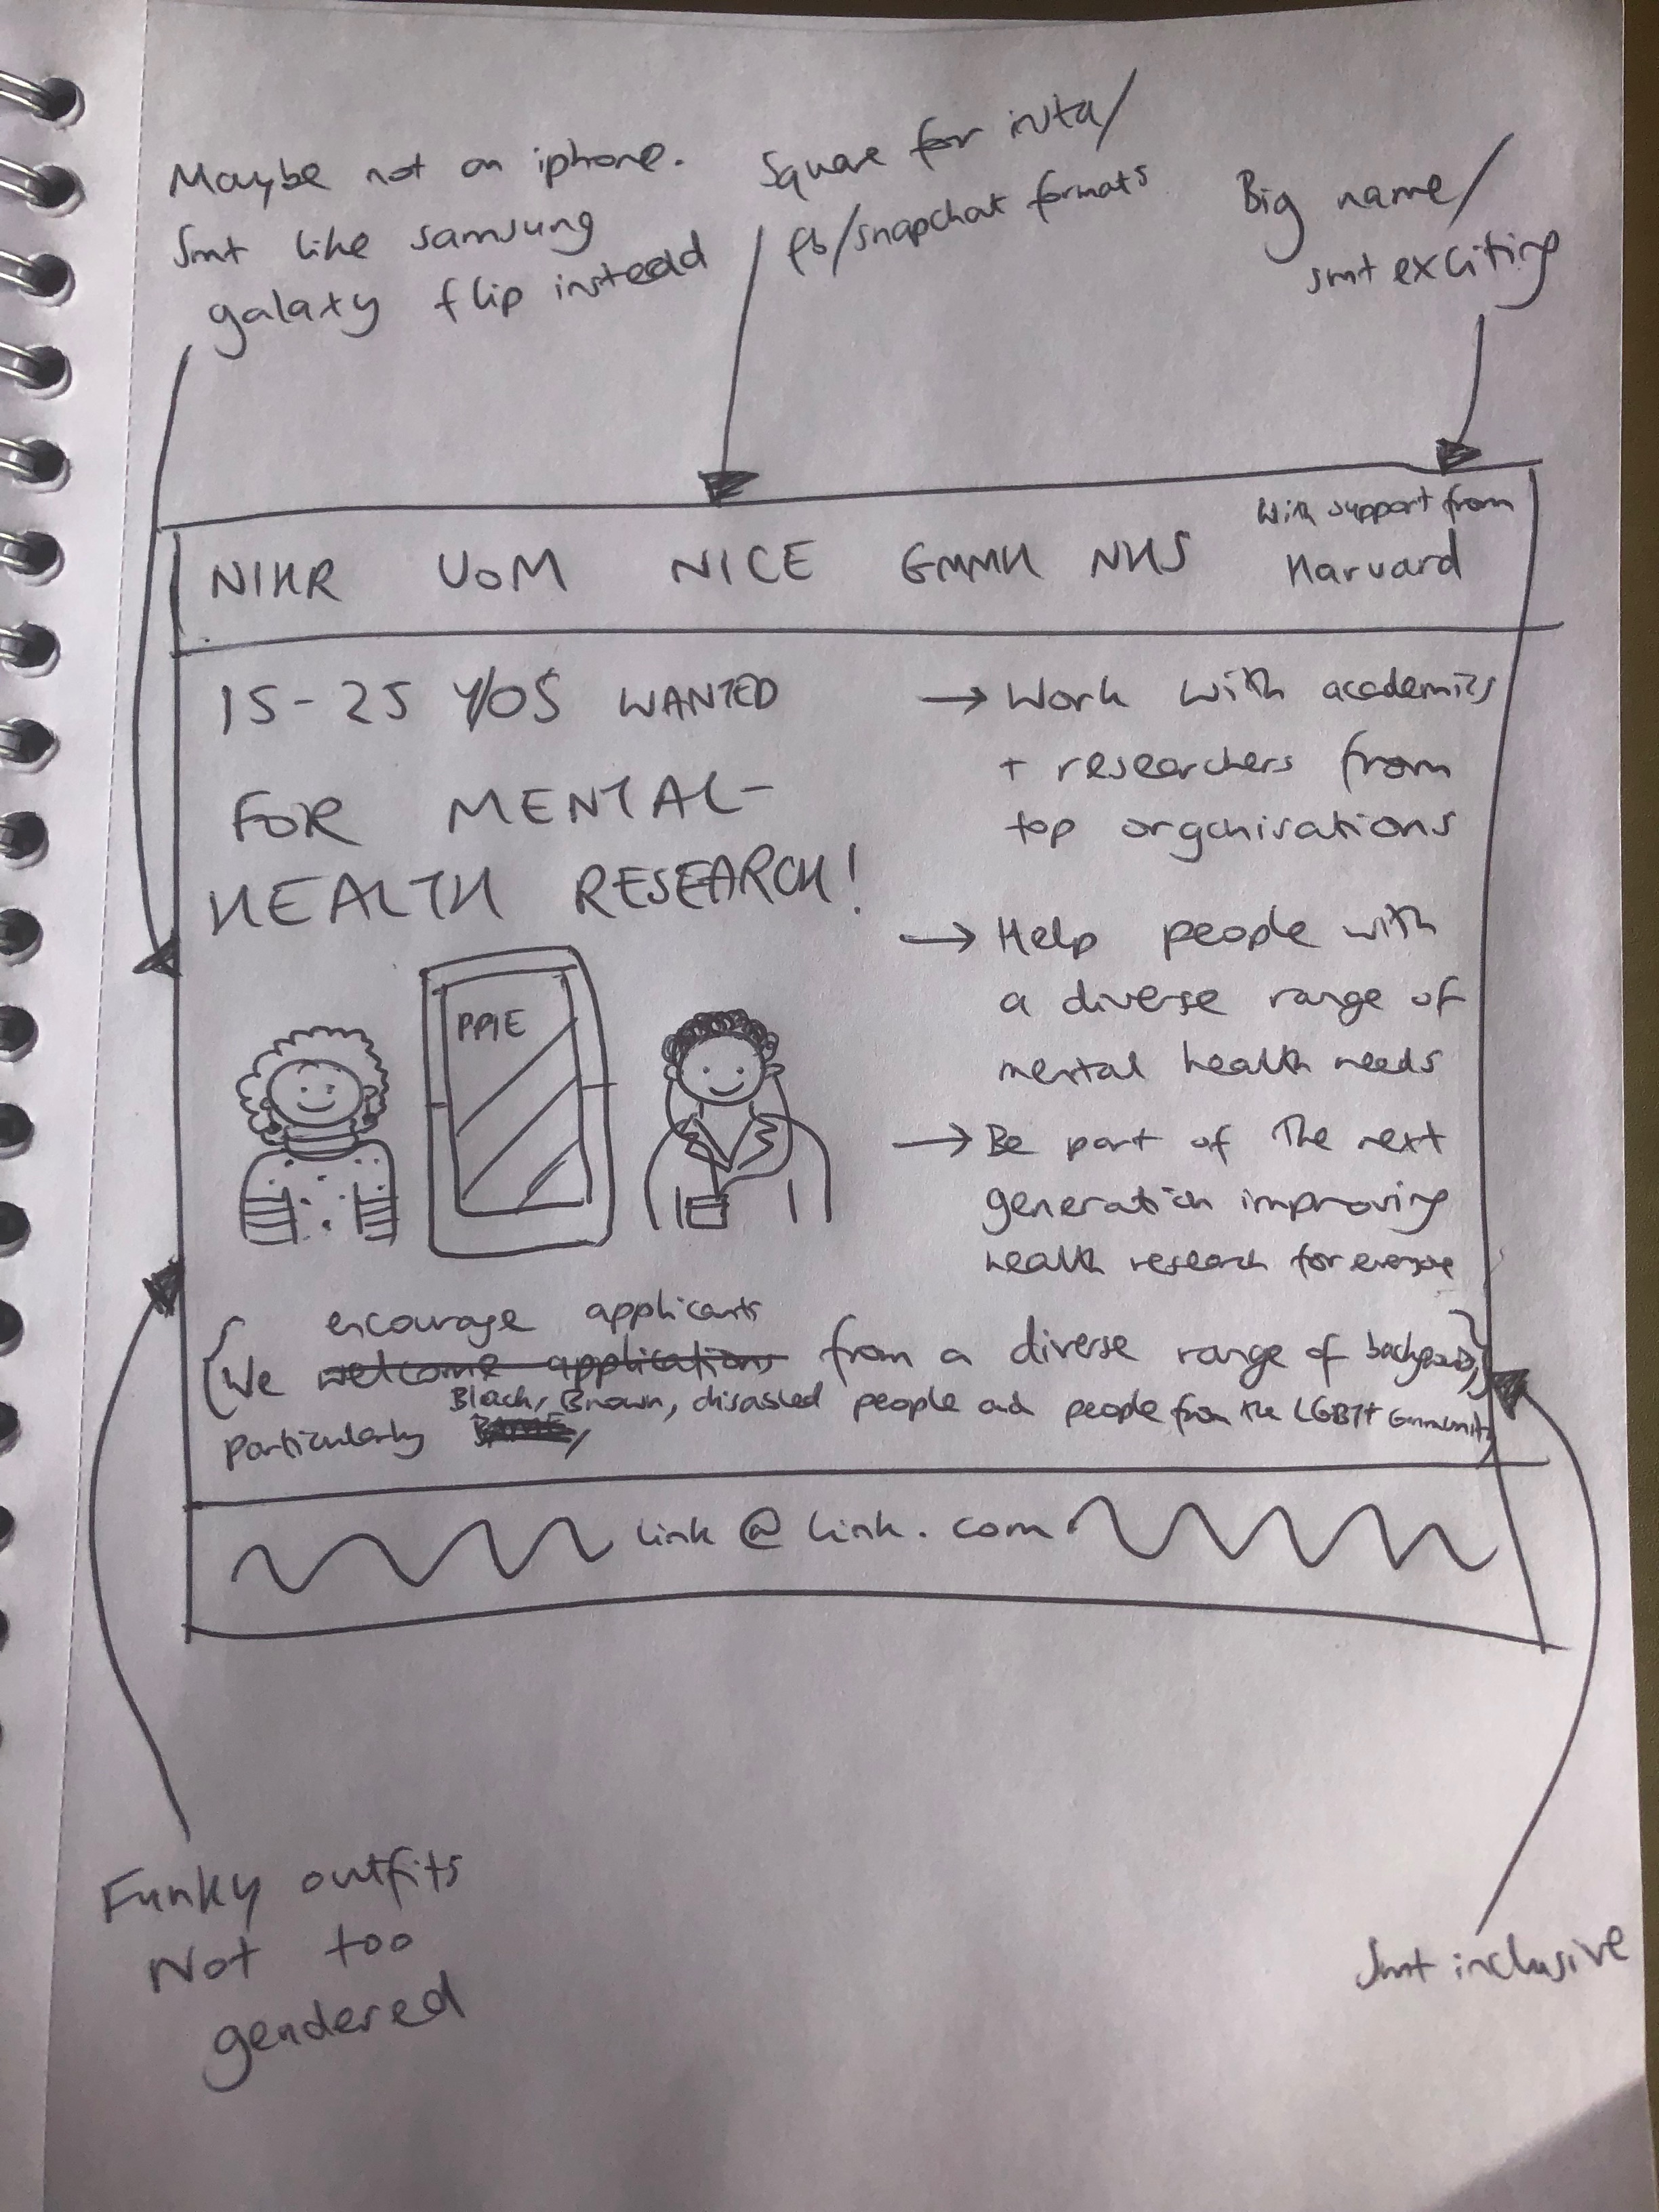 Maybe not an iphone.
Smt like samsung
galaxy flip instead
Square for insta/
fb/snapchat formats
Big name/
smt exciting
NIHR UoM NICE GMMH NHS
With support from
Harvard
15-25 Y/OS WANTED
FOR MENTAL-
HEALTH RESEARCH!
PPIE
→ Work with academics
+ researchers from
top organisations
→ Help people with
a diverse range of
mental health needs
→ Be part of the next
generation improving
health research for everyone
encourage applicants
{We welcome applications from a diverse range of backgrounds,}
Black, Brown, disabled people and people from the LGBT+ Community
particularly BAME,
link@link.com
Funky outfits
Not too
gendered
Smt inclusive